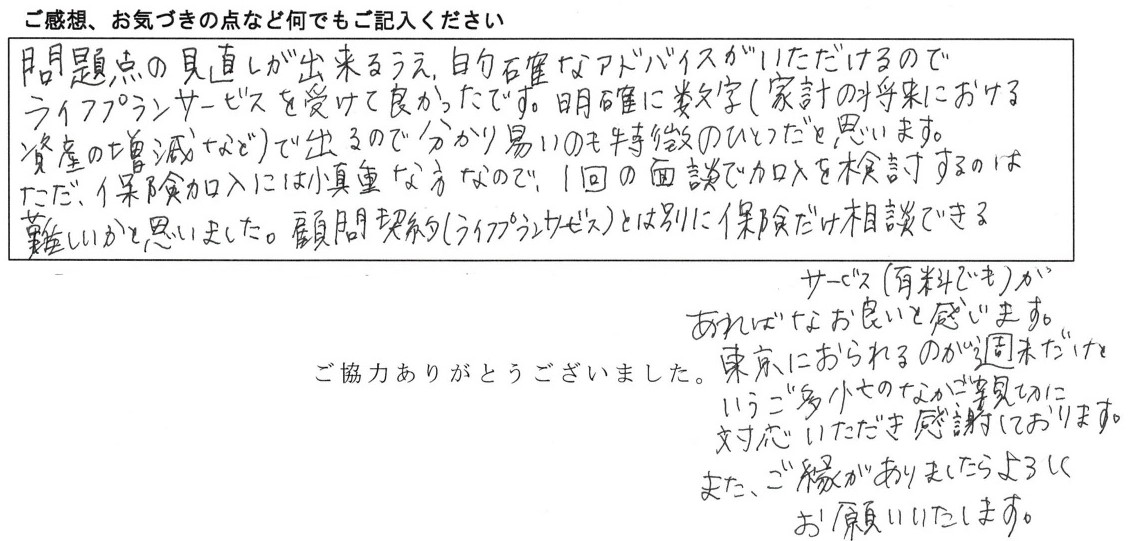 ご感想、お気づきの点など何でもご記入ください
問題点の見直しが出来るうえ、的確なアドバイスがいただけるので
ライフプランサービスを受けて良かったです。明確に数字(家計の将来における
資産の増減など)で出るので分かり易いのも特徴のひとつだと思います。
ただ、保険加入には慎重な方なので、1回の面談で加入を検討するのは
難しいかと思いました。顧問契約(ライフプランサービス)とは別に保険だけ相談できる
サービス(有料でも)が
あればなお良いと感じます。
東京におられるのが週末だけと
いうご多忙のなかご親切に
対応いただき感謝しております。
また、ご縁がありましたらよろしく
お願いいたします。
ご協力ありがとうございました。